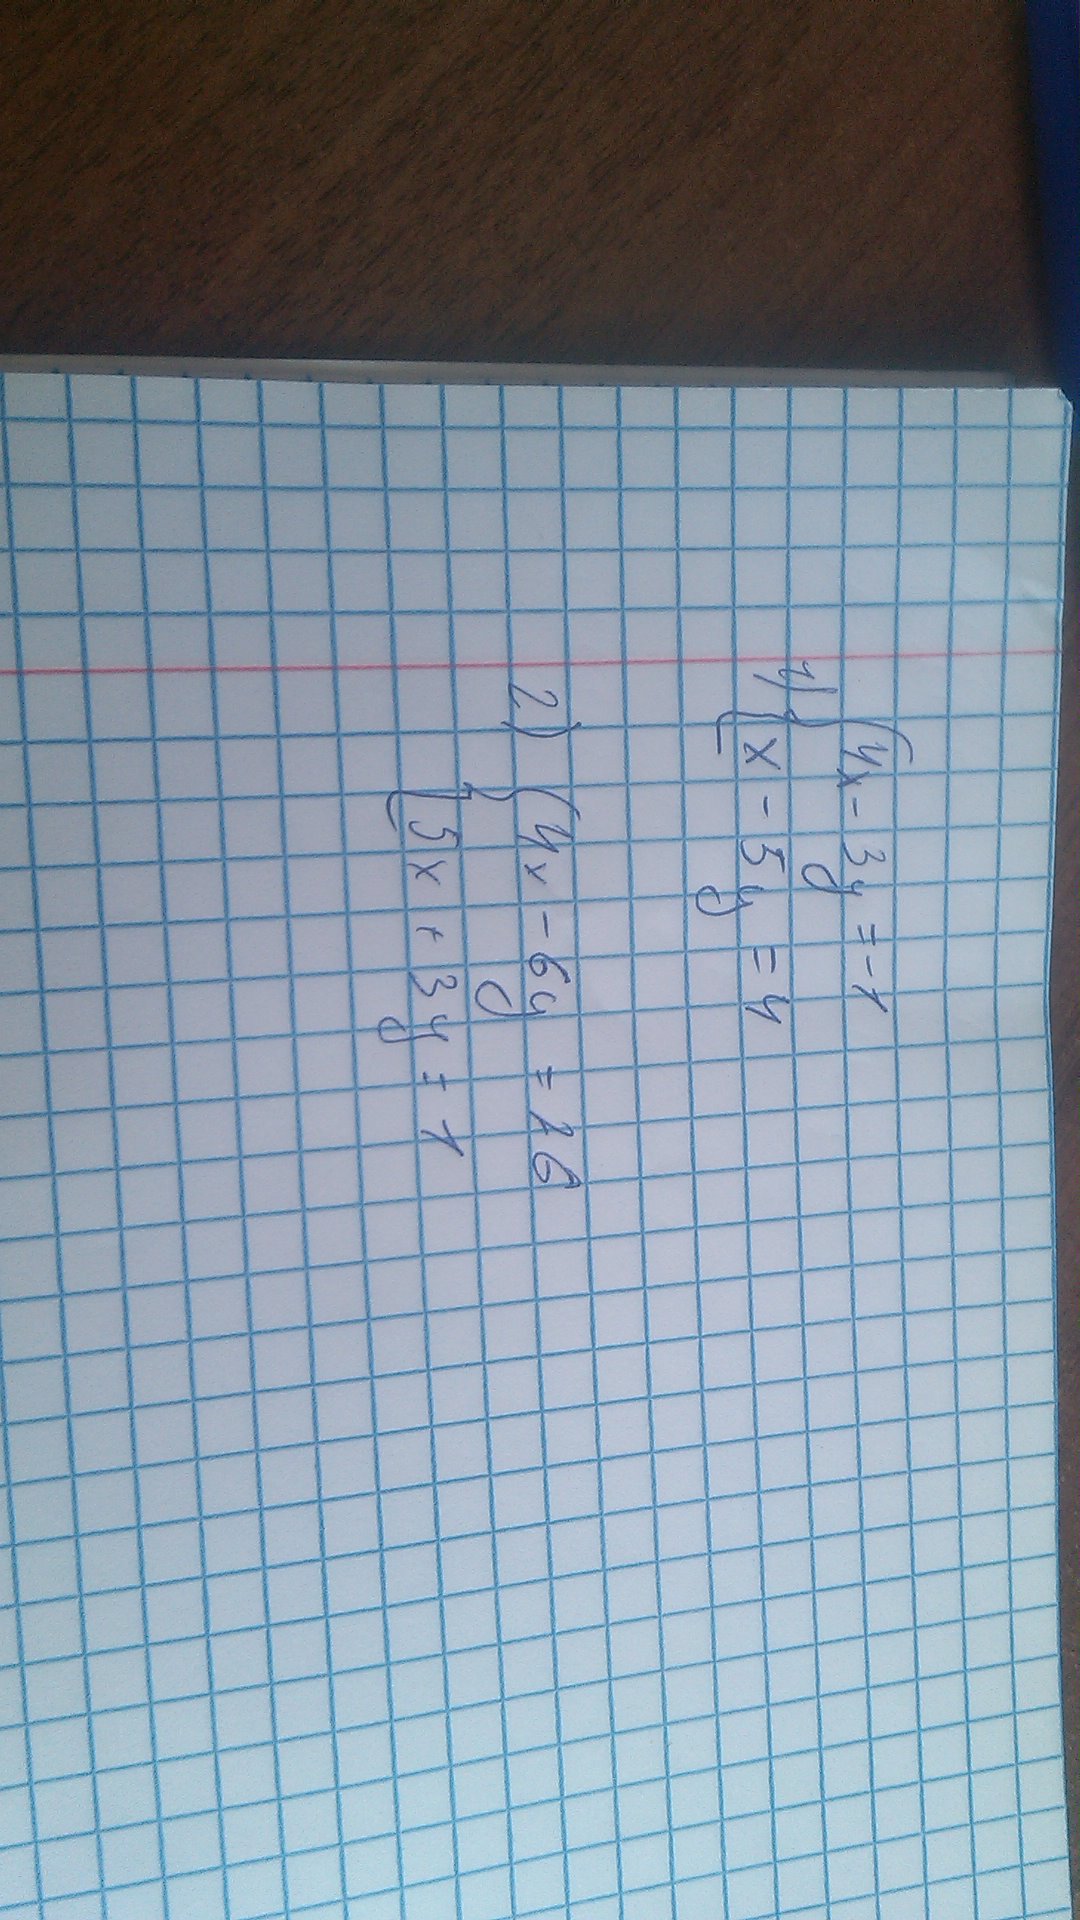 1) { 4x - 3y = -1
x - 5y = 4
2) { 4x - 6y = 26
5x + 3y = 1